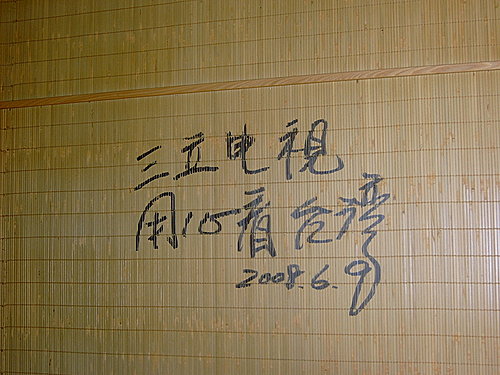 三立电視
用心看台灣
2008.6.9